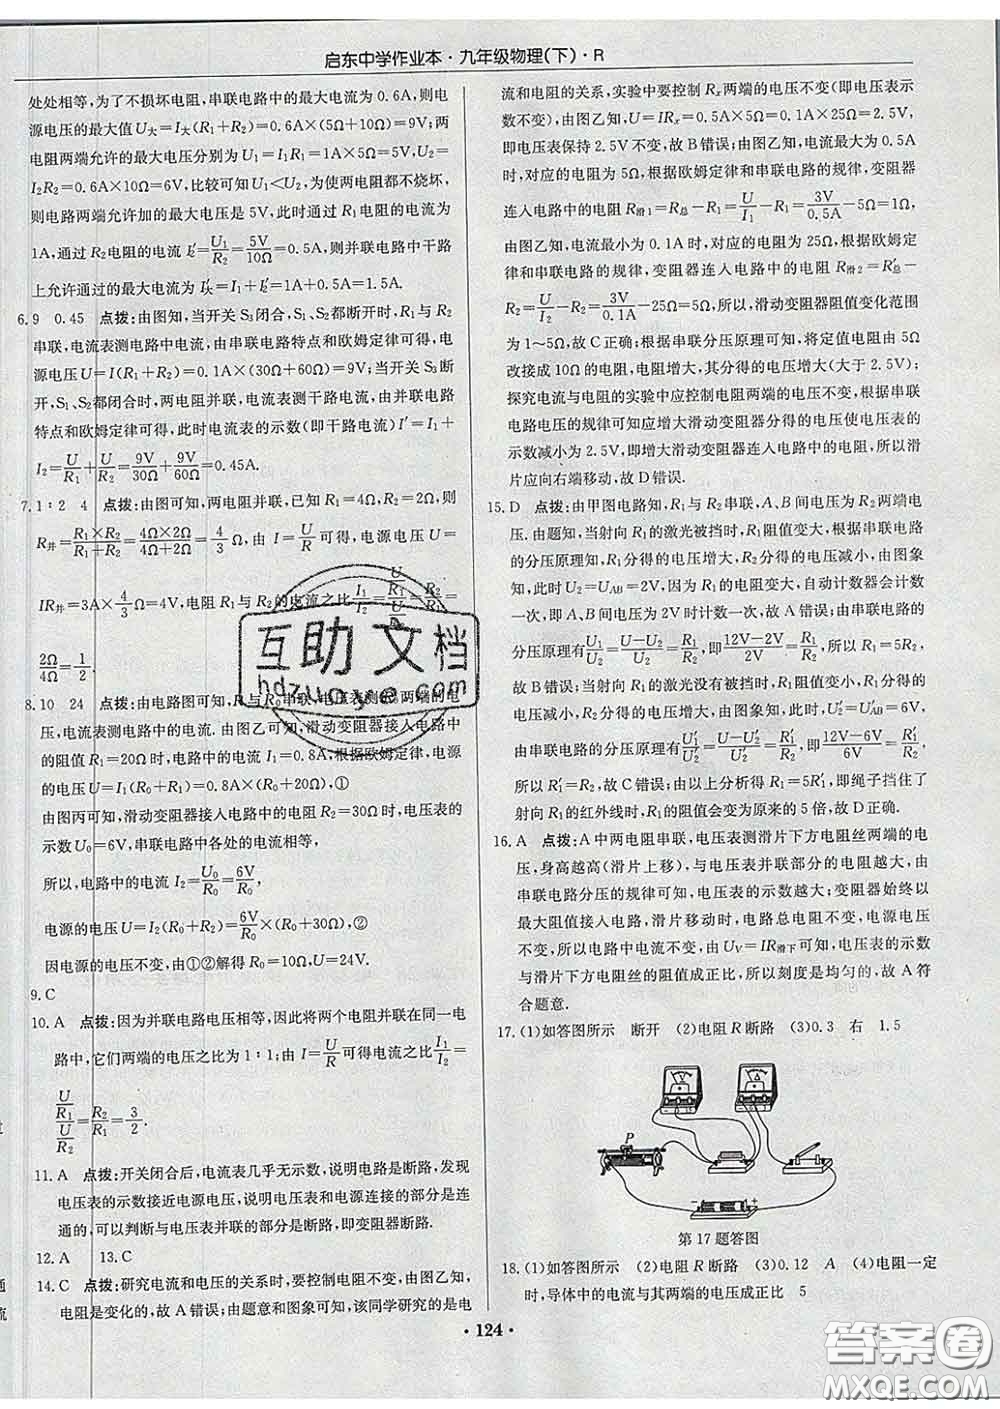 启东中学作业本·九年级物理(下)·R
处处相等,为了不损坏电阻,串联电路中的最大电流为0.6A,则电
源电压的最大值U大=I大(R₁+R₂)=0.6A×(5Ω+10Ω)=9V;两
电阻两端允许的最大电压分别为U₁=I₁R₁=1A×5Ω=5V,U₂=
I₂R₂=0.6A×10Ω=6V,比较可知U₁<U₂,为使两电阻都不烧坏,
则电路两端允许加的最大电压是5V,此时通过R₁电阻的电流为
1A,通过R₂电阻的电流I₂′=U₁/R₂=5V/10Ω=0.5A,则并联电路中干路
上允许通过的最大电流为I大′=I₁+I₂′=1A+0.5A=1.5A.
6.9 0.45 点拨:由图知,当开关S₃闭合,S₁、S₂都断开时,R₁与R₂
串联,电流表测电路中电流,由串联电路特点和欧姆定律可得,电
源电压U=I(R₁+R₂)=0.1A×(30Ω+60Ω)=9V;当开关S₃断
开,S₁、S₂都闭合时,两电阻并联,电流表测干路电流,由并联电路
特点和欧姆定律可得,此时电流表的示数(即干路电流)I′=I₁+
I₂=U/R₁+U/R₂=9V/30Ω+9V/60Ω=0.45A.
7.1:2 4 点拨:由图可知,两电阻并联,已知R₁=4Ω,R₂=2Ω,则
R并=R₁×R₂/R₁+R₂=4Ω×2Ω/4Ω+2Ω=4/3Ω,由I=U/R可得,电源电压U=
IR并=3A×4/3Ω=4V,电阻R₁与R₂的电流之比I₁/I₂=U/R₁/U/R₂=R₂/R₁=
2Ω/4Ω=1/2.
8.10 24 点拨:由电路图可知,R与R₀串联,电压表测R₀两端的电
压,电流表测电路中的电流.由图乙可知,滑动变阻器接入电路中
的阻值R₁=20Ω时,电路中的电流I₁=0.8A,根据欧姆定律,电源
的电压U=I₁(R₀+R₁)=0.8A×(R₀+20Ω),①
由图丙可知,滑动变阻器接入电路中的电阻R₂=30Ω时,电压表的
示数U₀=6V,串联电路中各处的电流相等,
所以,电路中的电流I₂=U₀/R₀=6V/R₀,
电源的电压U=I₂(R₀+R₂)=6V/R₀×(R₀+30Ω),②
因电源的电压不变,由①②解得R₀=10Ω,U=24V.
9.C
10.A 点拨:因为并联电路电压相等,因此将两个电阻并联在同一电
路中,它们两端的电压之比为1:1;由I=U/R可得电流之比I₁/I₂=
U/R₁/U/R₂=R₂/R₁=3/2.
11.A 点拨:开关闭合后,电流表几乎无示数,说明电路是断路,发现
电压表的示数接近电源电压,说明电压表和电源连接的部分是连
通的,可以判断与电压表并联的部分是断路,即变阻器断路.
12.A 13.C
14.C 点拨:研究电流和电压的关系时,要控制电阻不变,由图乙知,
电阻是变化的,故A错误;由题意和图象可知,该同学研究的是电
流和电阻的关系,实验中要控制Rₓ两端的电压不变(即电压表示
数不变),由图乙知,U=IRₓ=0.5A×5Ω=0.1A×25Ω=2.5V,
即电压表保持2.5V不变,故B错误;由图乙知,电流最大为0.5A
时,对应的电阻为5Ω,根据欧姆定律和串联电路的规律,变阻器
连入电路中的电阻R滑1=R总-R₁=U/I₁-R₁=3V/0.5A-5Ω=1Ω,
由图乙知,电流最小为0.1A时,对应的电阻为25Ω,根据欧姆定
律和串联电路的规律,变阻器连入电路中的电阻R滑2=R总′-
R₂=U/I₂-R₂=3V/0.1A-25Ω=5Ω;所以,滑动变阻器阻值变化范围
为1~5Ω,故C正确;根据串联分压原理可知,将定值电阻由5Ω
改接成10Ω的电阻,电阻增大,其分得的电压增大(大于2.5V);
探究电流与电阻的实验中应控制电阻两端的电压不变,根据串联
电路电压的规律可知应增大滑动变阻器分得的电压使电压表的
示数减小为2.5V,即增大滑动变阻器连入电路中的电阻,所以滑
片应向右端移动,故D错误.
15.D 点拨:由甲图电路知,R₁与R₂串联,A、B间电压为R₂两端电
压.由题知,当射向R₁的激光被挡时,R₁阻值变大,根据串联电路
的分压原理知,R₁分得的电压增大,R₂分得的电压减小,由图象
知,此时U₂=UAB=2V,因为R₁的电阻变大时,自动计数器会计数
一次,即A、B间电压为2V时计数一次,故A错误;由串联电路的
分压原理有U₁/U₂=U-U₂/U₂=R₁/R₂,即12V-2V/2V=R₁/R₂,所以R₁=5R₂,
故B错误;当射向R₁的激光没有被挡时,R₁的阻值变小,根据分压
原理可知,R₂分得的电压增大,由图象知,此时U₂′=UAB′=6V,
由串联电路的分压原理有U₁′/U₂′=U-U₂′/U₂′=R₁′/R₂,即12V-6V/6V=R₁′/R₂,
所以R₁′=R₂,故C错误;由以上分析得R₁=5R₁′,即绳子挡住了
射向R₁的红外线时,R₁的阻值会变为原来的5倍,故D正确.
16.A 点拨:A中两电阻串联,电压表测滑片下方电阻丝两端的电
压,身高越高(滑片上移),与电压表并联部分的电阻越大,由
串联电路分压的规律可知,电压表的示数越大;变阻器始终以
最大阻值接入电路,滑片移动时,电路总电阻不变,电源电压
不变,所以电路中电流不变,由UV=IR滑下可知,电压表的示数
与滑片下方电阻丝的阻值成正比,所以刻度是均匀的,故A符
合题意.
17.(1)如答图所示 断开 (2)电阻R断路 (3)0.3 右 1.5
V
A
P
- +
第17题答图
18.(1)如答图所示 (2)电阻R断路 (3)0.12 A (4)电阻一定
时,导体中的电流与其两端的电压成正比 5
·124·
互助文档
hdzuoye.com
答案圈
MXQE.COM
过
通
流